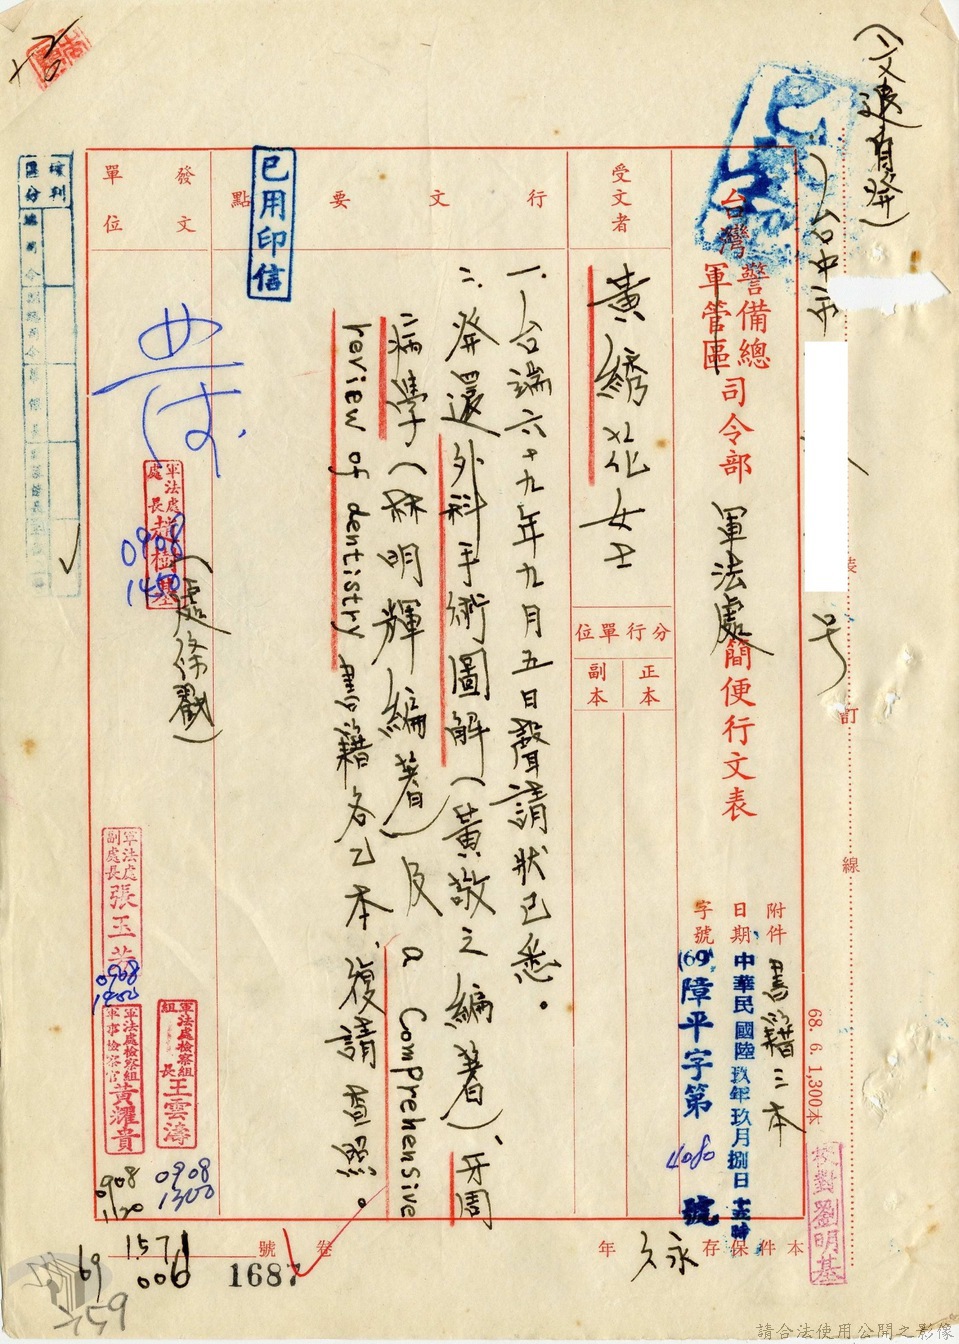 (文退自發)
台中市
號
裝
訂
線
68. 6. 1,300本
校對劉明基
台灣警備總司令部軍法處簡便行文表
軍管區
附件
書籍三本
日期
中華民國陸玖年玖月捌日
字號
(69)障平字第4080號
受文者
黃綉花女士
分行單位
正本
副本
行文要點
一、台端六十九年九月五日聲請狀已悉。
二、發還外科手術圖解(黃敬之編著)、牙周
病學(林明輝編著)及 a Comprehensive
review of dentistry 書籍各乙本,復請查照。
已用印信
發文單位
軍法處處長
0908
1450
(處條戳)
軍法處副處長張玉
0908
1400
軍法處檢察組組長王雲濤
0908
1300
軍法處檢察組軍事檢察官黃耀貴
0908
1120
本件保存永久年
卷
號
1571
006
1687
69
759
請合法使用公開之影像